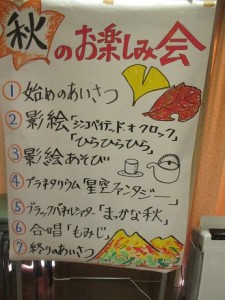 秋のお楽しみ会
① 始めのあいさつ
② 影絵「ジンコパイナード・オクロック」
「ひらひらひら」
③ 影絵あそび
④ プラネタリウム「星空ファンタジー」
⑤ ブラックパネルシアター「まっかな秋」
⑥ 合唱「もみじ」
⑦ 終りのあいさつ